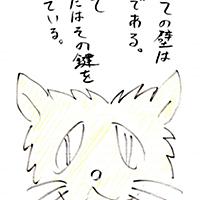 ての壁は
である。
て
たはその鍵を
ている。